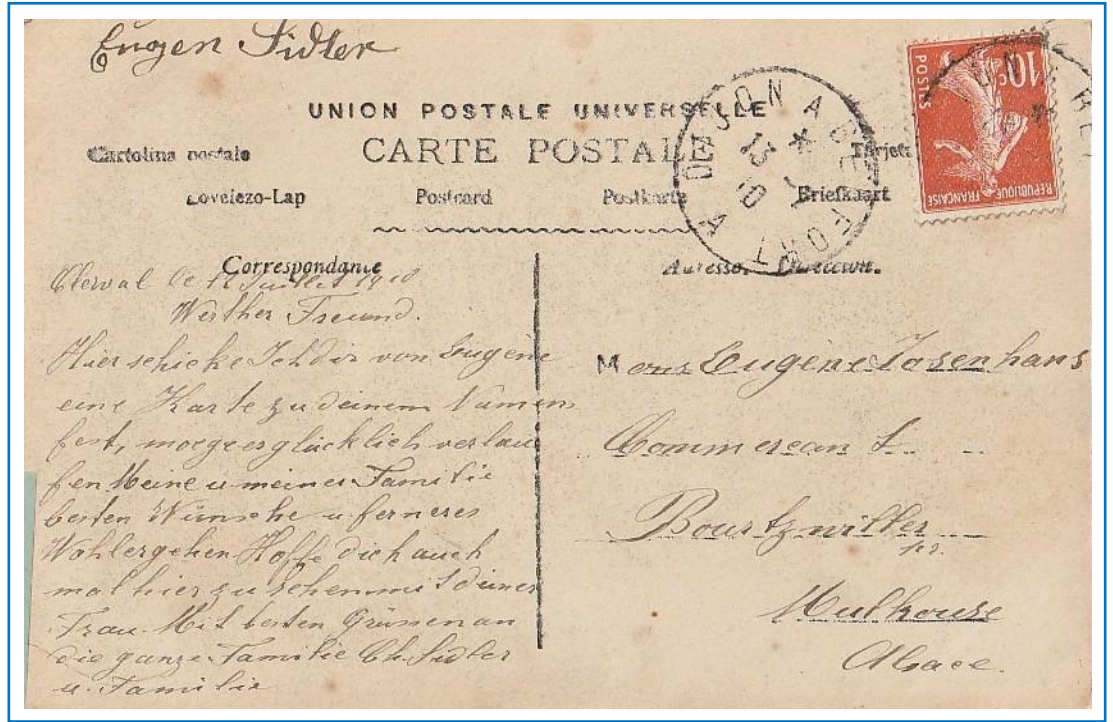 Eugen Sidler
UNION POSTALE UNIVERSELLE
CARTE POSTALE
Cartolina postale
Levelezo-Lap Postcard Postkarte Briefkaart
Correspondance
Clerval le Juillet 1910
Werther Freund.
Hier schicke Ich dir von Eugene
eine Karte zu deinem Namens
fest, moege er glücklich verlau
fen Meine u meiner Familie
besten Wünsche u ferneres
Wohlergehen Hoffe dich auch
mal hier zu sehen mit deiner
Frau. Mit besten Grüssen an
die ganze Familie Ch. Sidler
u. Familie
Mons Eugène Josenhans
Commercant
Bourtzwiller
Mulhouse
Alsace.
10 c
POSTES
REPUBLIQUE FRANÇAISE
13
10